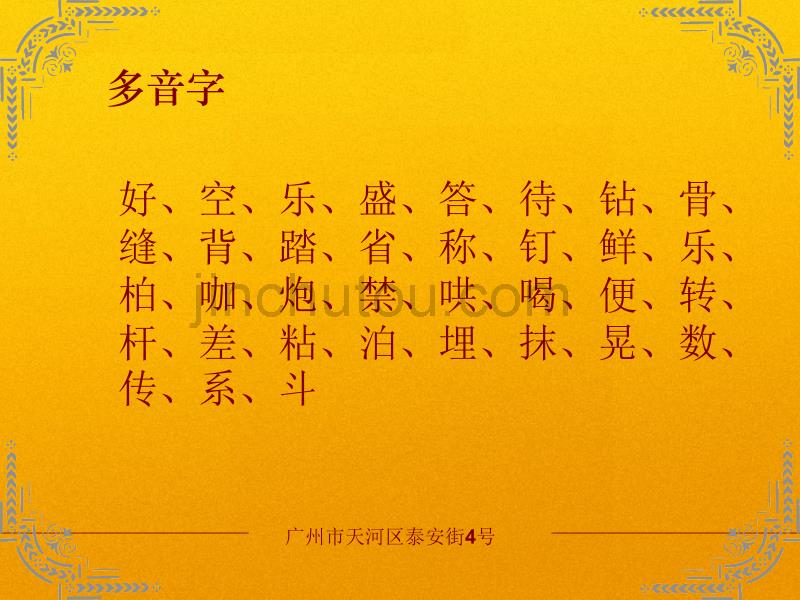 多音字
好、空、乐、盛、答、待、钻、骨、
缝、背、踏、省、称、钉、鲜、乐、
柏、咖、炮、禁、哄、喝、便、转、
jinchutou.com
杆、差、粘、泊、埋、抹、晃、数、
传、系、斗
广州市天河区泰安街4号